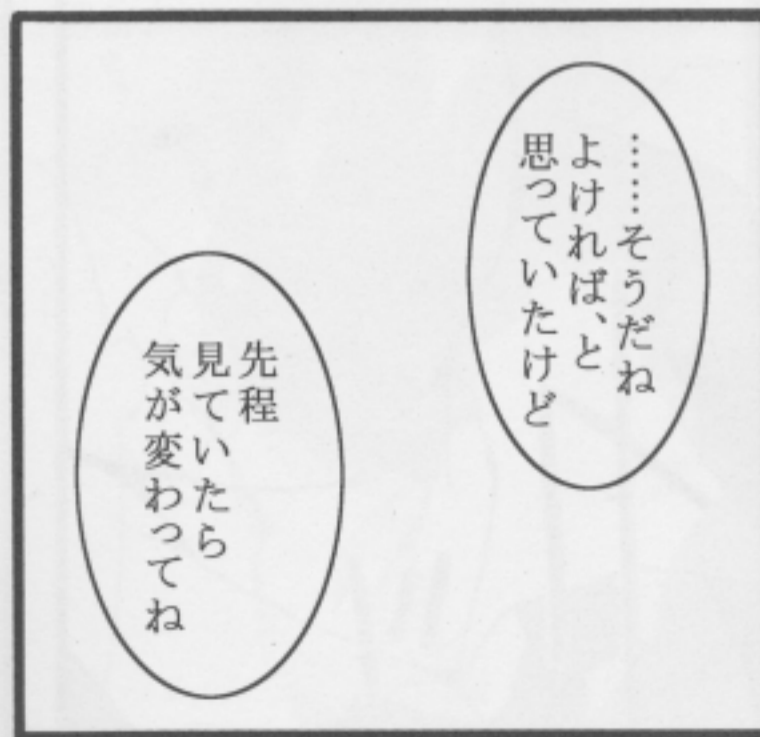 ……そうだね
よければ、と
思っていたけど
先程
見ていたら
気が変わってね